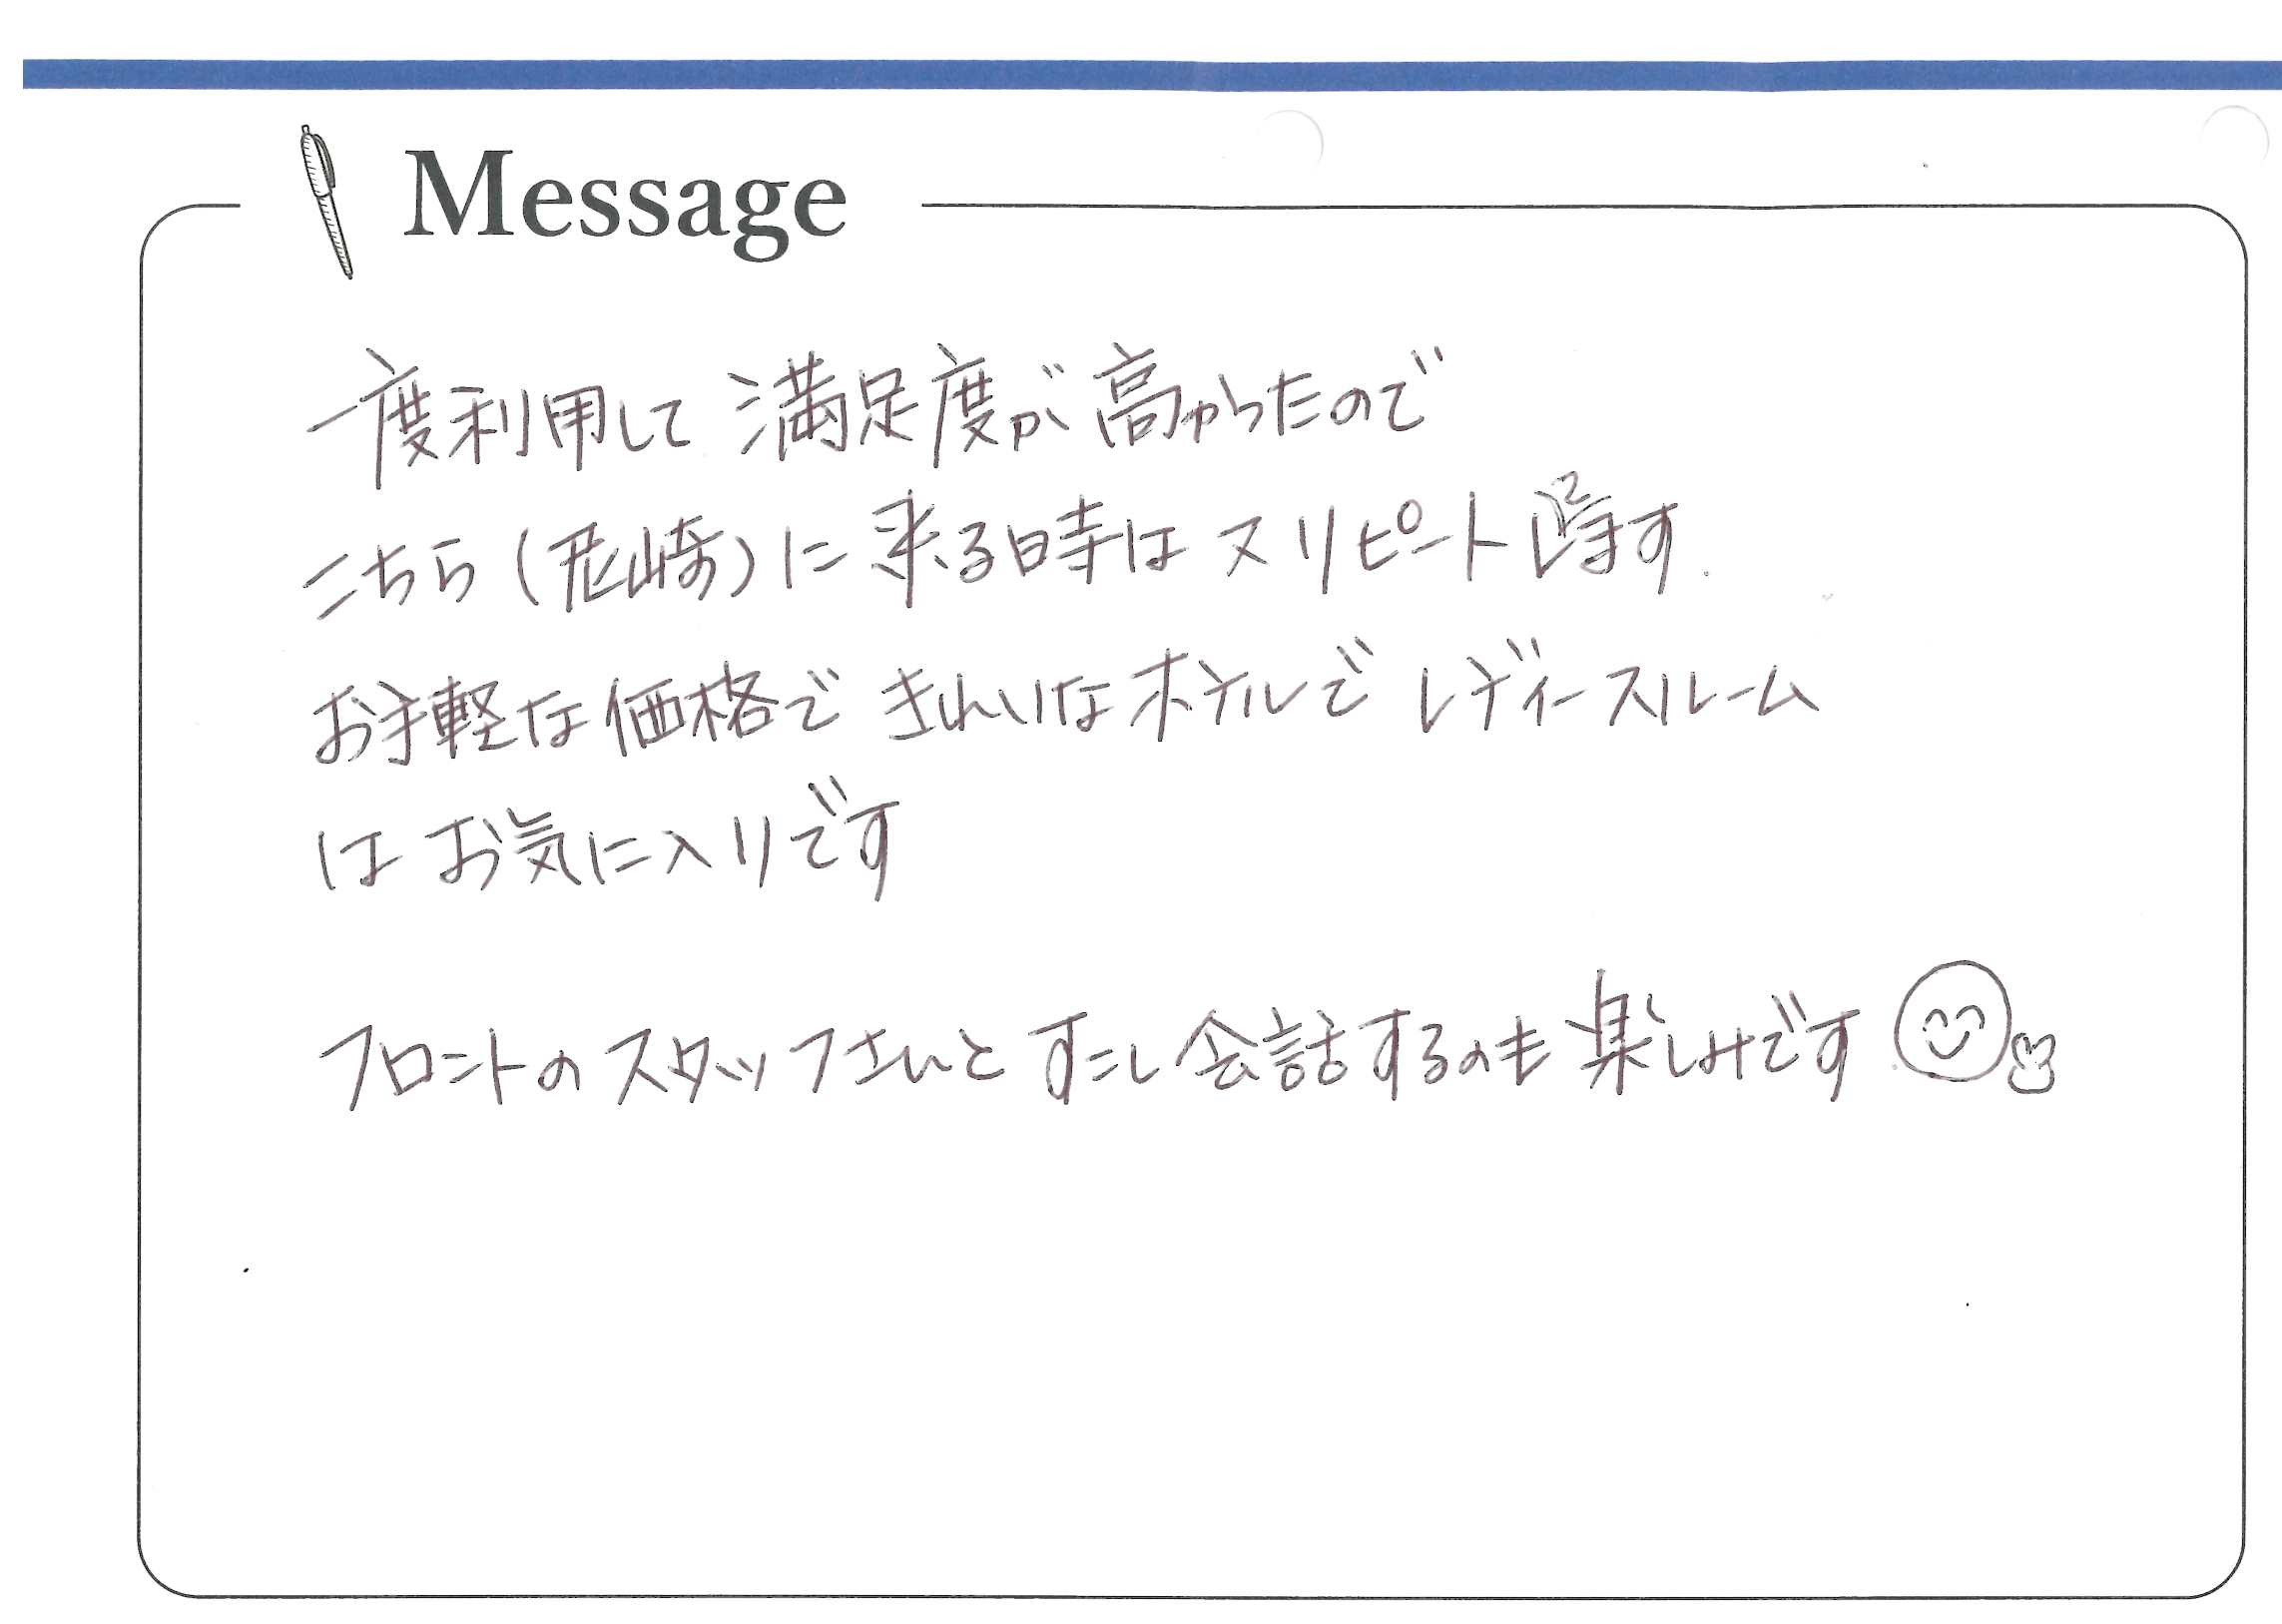 Message
一度利用して 満足度が 高かったので
こちら(尼崎)に 来る時は ヌリピートします.
お手軽な価格で きれいなホテルで レディースルーム
は お気に入りです
フロントのスタッフさんと すこし会話するのも 楽しみです